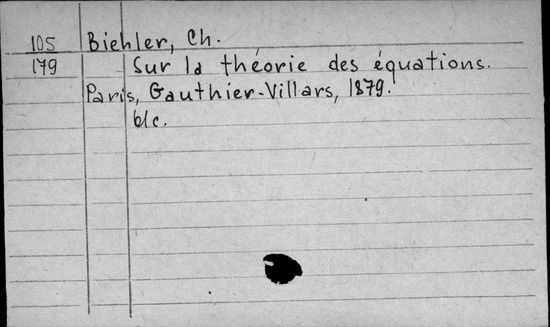 105 Biehler, Ch.
179 Sur la théorie des équations.
Paris, Gauthier-Villars, 1879.
b/c.